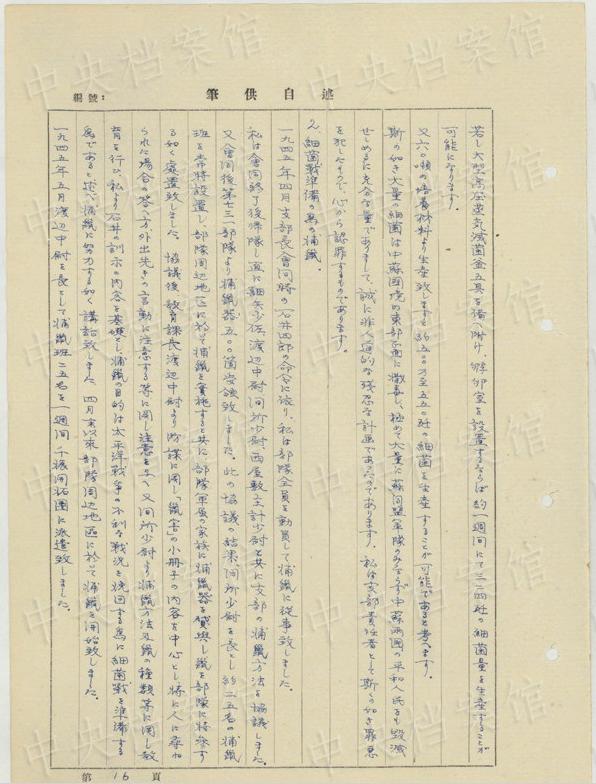 編號:
筆供自述
若し大型高圧蒸気滅菌釜五具を備へ附け、孵卵室を設置するならば約一週間にて三三四瓩の細菌量を生産することが
可能になります。
又六〇噸の培養材料より生産致しますと約五〇〇乃至五五〇瓩の細菌を生産することが可能であると考へます。
斯の如き大量の細菌は中蘇国境の東部正面に撒毒し、極めて大量に蘇同盟軍隊のみならず中蘇両国の平和人民をも毀滅
せしめるに充分な量でありまして、誠に非人道的な残忍な計画であったのであります。私は支部責任者として斯くの如き罪悪
を犯したもので、心から認罪するものであります。
2、細菌戦準備の為の捕鼠。
一九四五年四月支部長会同時の石井四郎の命令に依り、私は部隊全員を動員して捕鼠に従事致しました。
私は会同終了後帰隊し直に細矢少佐、渡辺中尉、間所少尉、西屋敷主計少尉と共に支部の捕鼠方法を協議しました。
又会同後第七三一部隊より捕鼠器五〇〇箇受領致しました。此の協議の結果、間所少尉を長とし約二五名の捕鼠
班を常時設置し、部隊周辺地区に於て捕鼠を実施すると共に部隊軍属の家族に捕鼠器を貸与し鼠を部隊に持参す
る如く処置致しました。協議後教育課長渡辺中尉より防諜に関し「鼠害」の小冊子の内容を中心とし特に人に尋ね
られた場合の答へ方、外出先きの言動に注意する等に関し注意を与へ、又間所少尉より捕鼠方法及鼠の種類等に関し教
育を行ひ、私より石井の訓示の内容を基礎とし捕鼠の目的は太平洋戦争の不利な戦況を挽回する為に細菌戦を準備する
為であると述べ捕鼠に努力する如く講話致しました。四月末以来部隊周辺地区に於て捕鼠を開始致しました。
一九四五年五月渡辺中尉を長として捕鼠班二五名を一週間、千振開拓団に派遣致しました。
第 16 頁
中央档案馆